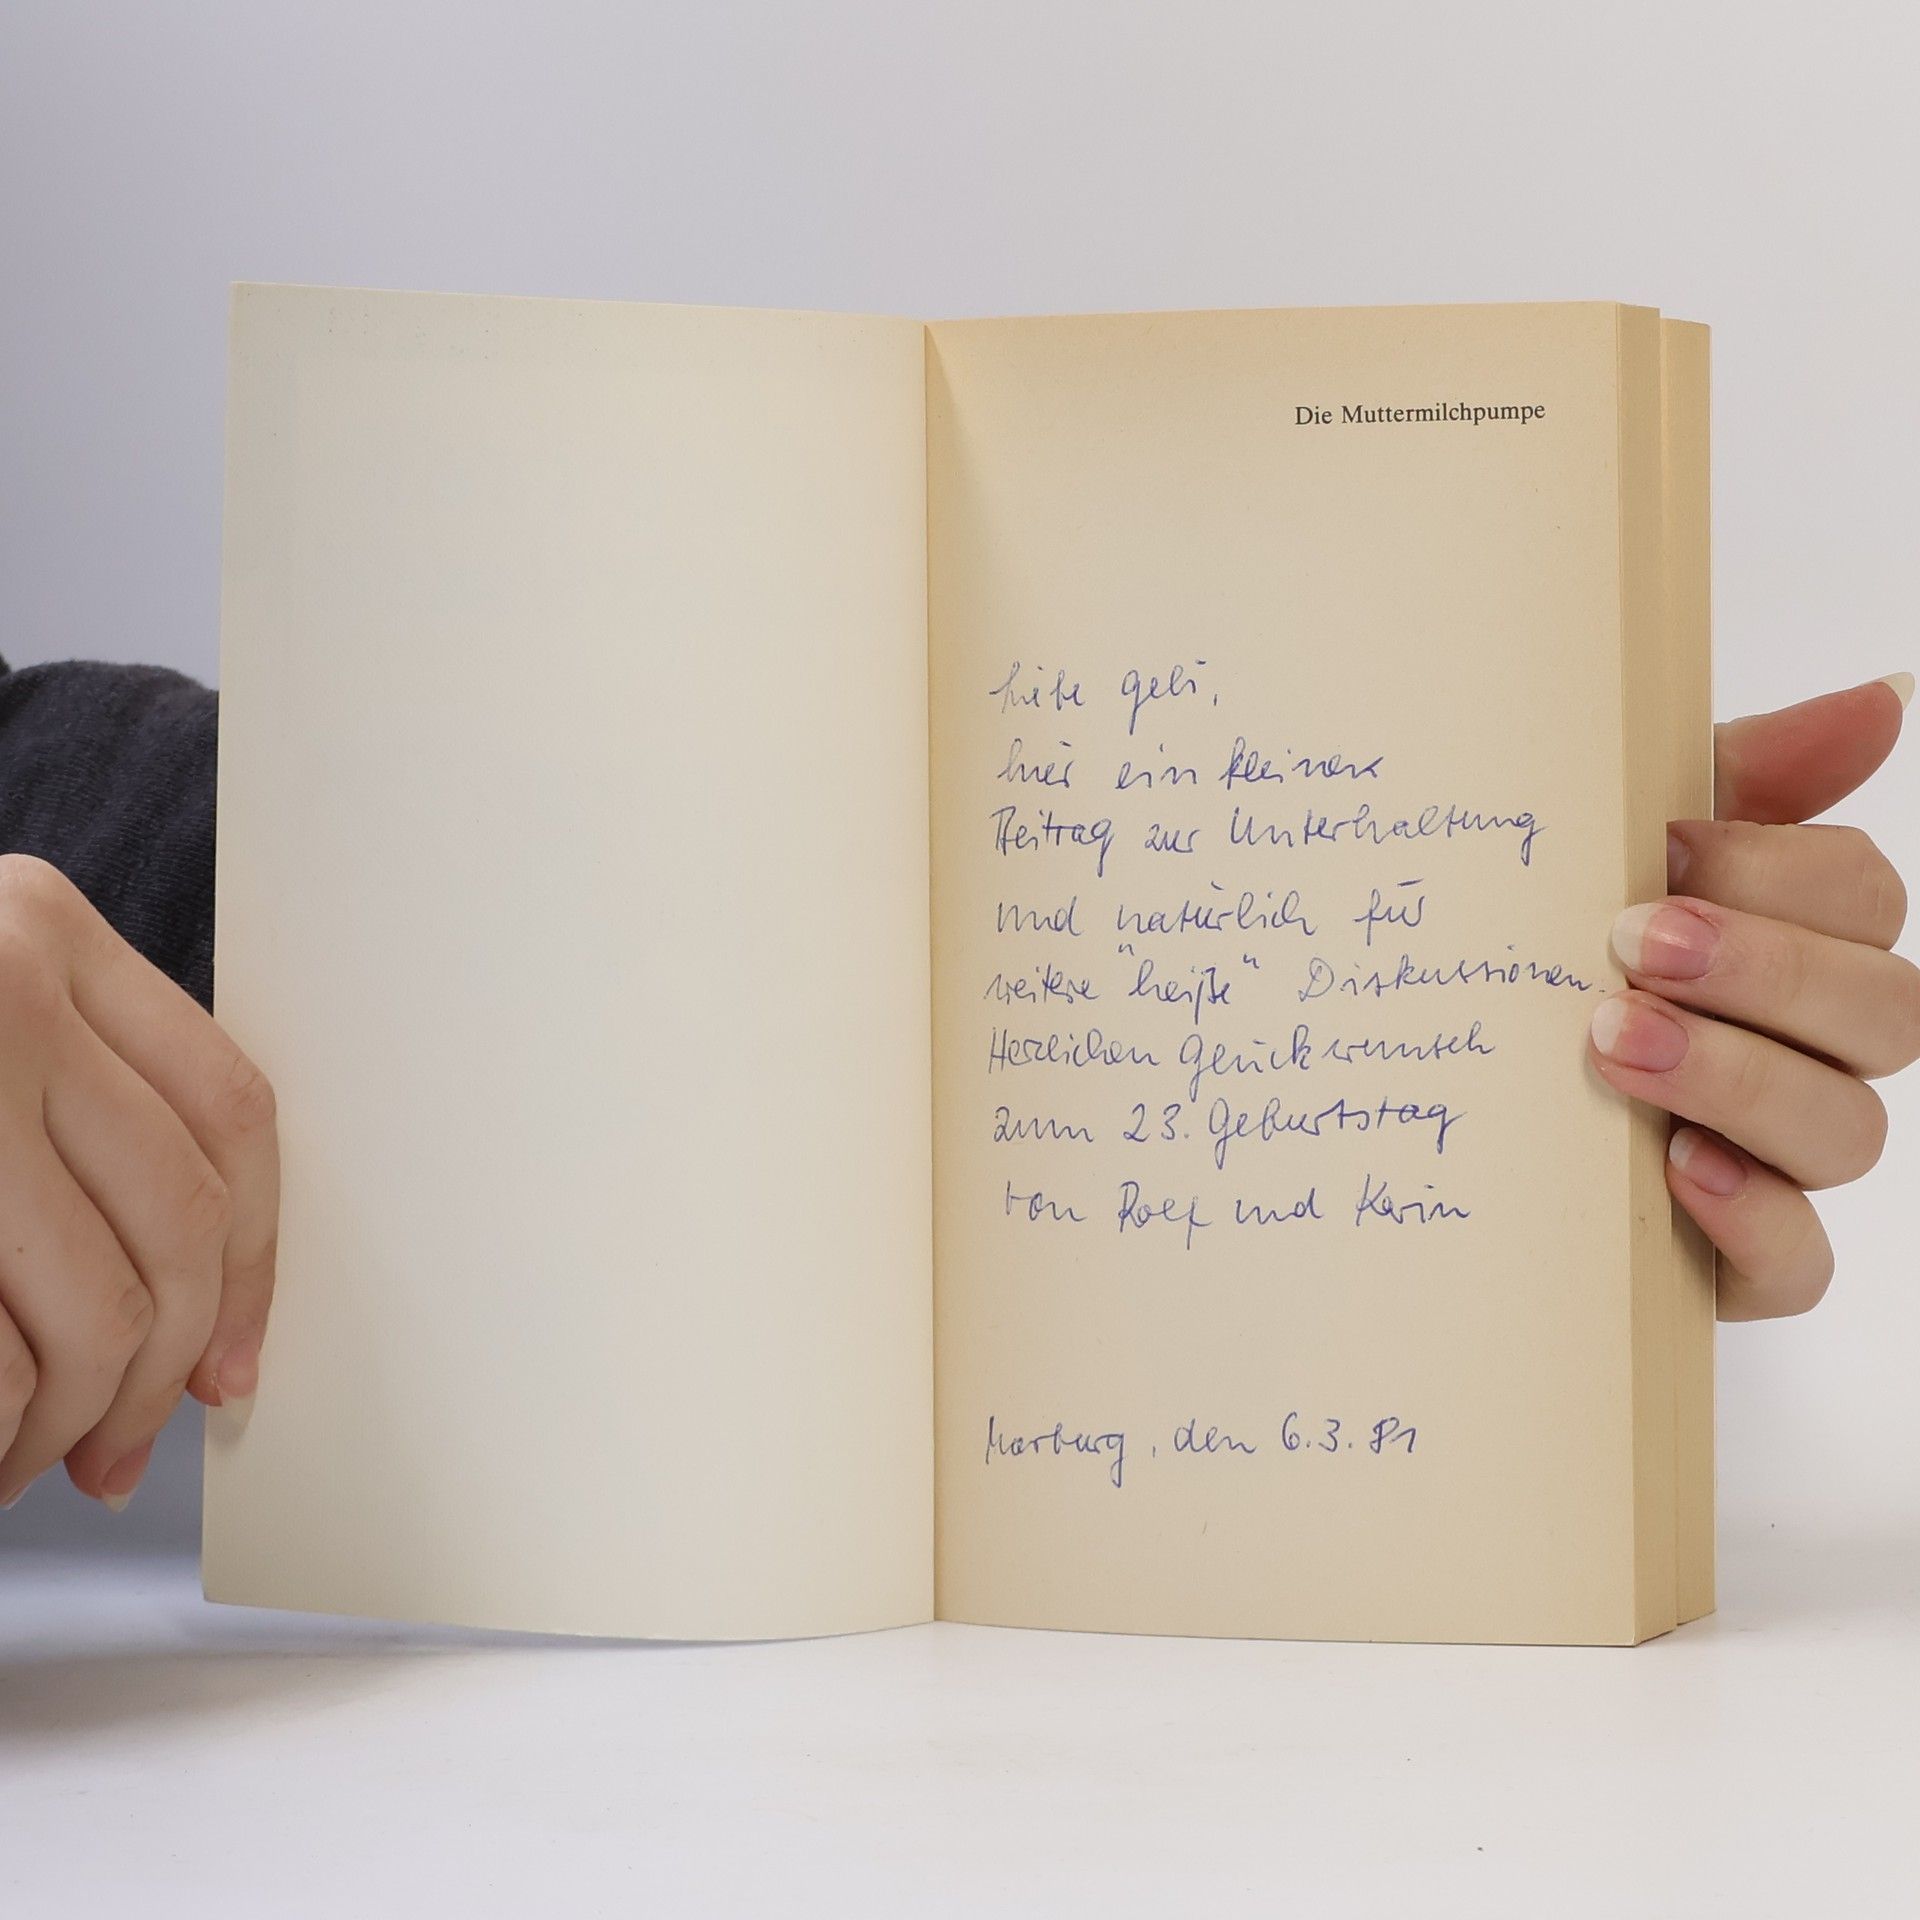 Die Muttermilchpumpe
Liebe Gebi,
hier ein kleiner
Beitrag zur Unterhaltung
und natürlich für
weitere "heiße" Diskussionen.
Herzlichen Glückwunsch
zum 23. Geburtstag
von Rolf und Karin
Marburg, den 6.3.81